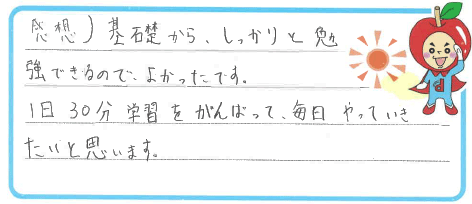 感想)基礎から、しっかりと勉
強できるので、よかったです。
1日30分学習をがんばって、毎日やっていき
たいと思います。
d